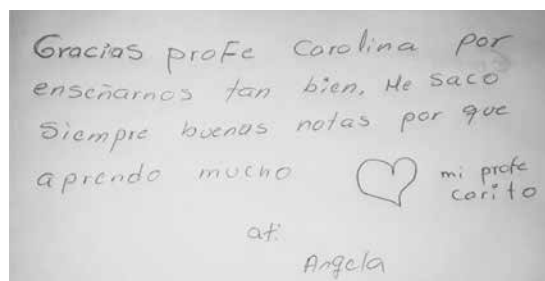 Gracias profe Carolina por
enseñarnos tan bien. Me saco
Siempre buenas notas por que
aprendo mucho
mi profe
carito
at:
Angela